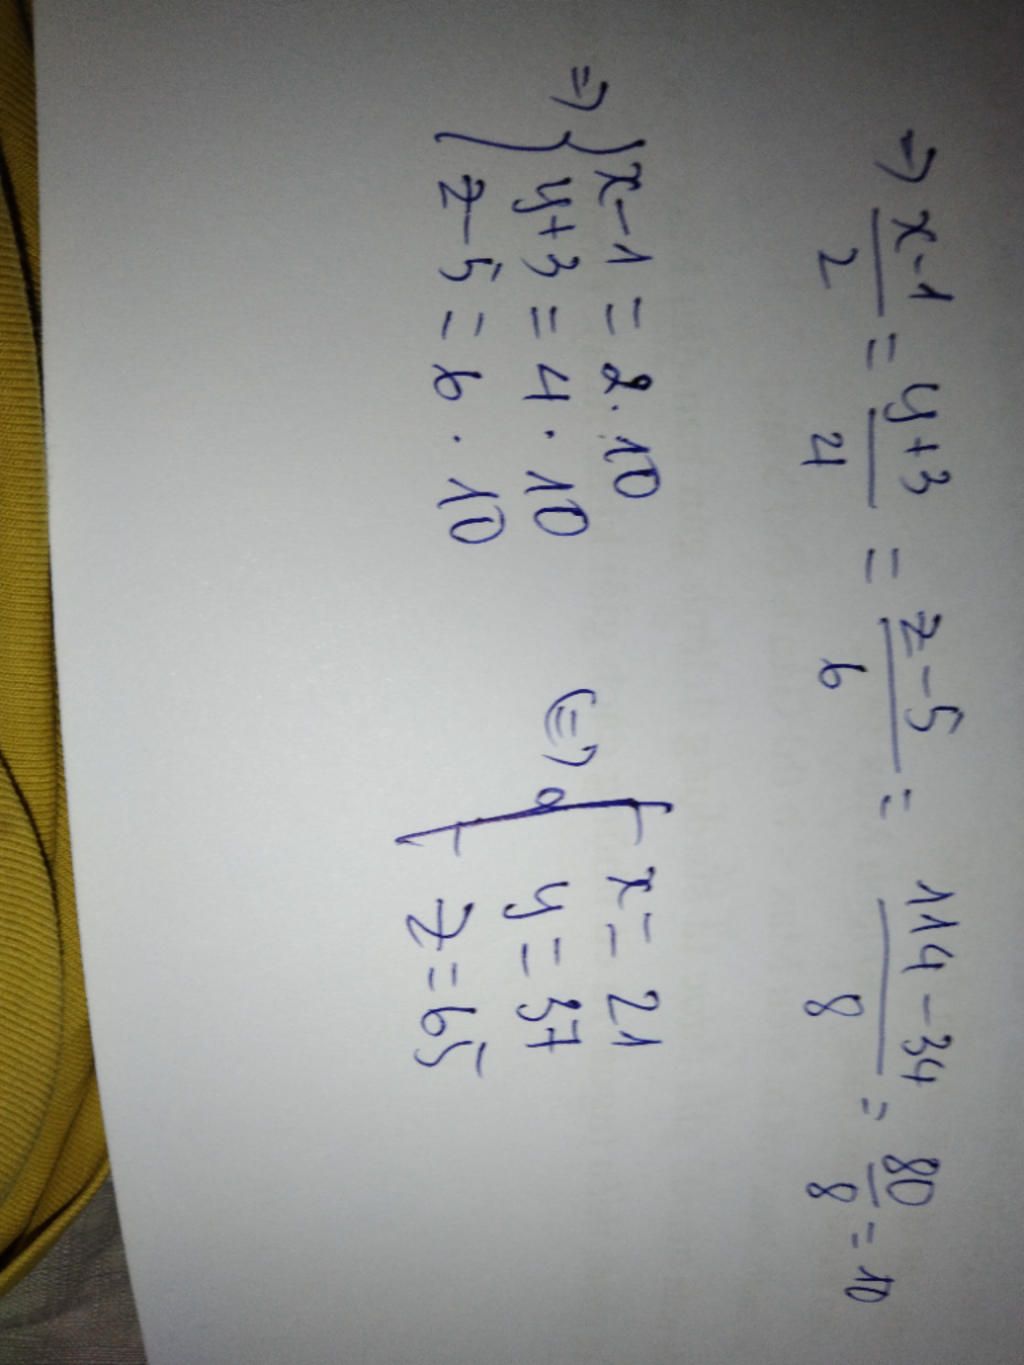 => x-1/2 = y+3/4 = z-5/6 = 114-34/8 = 80/8 = 10
=> { x-1 = 2.10
y+3 = 4.10
z-5 = 6.10
<=> { x = 21
y = 37
z = 65